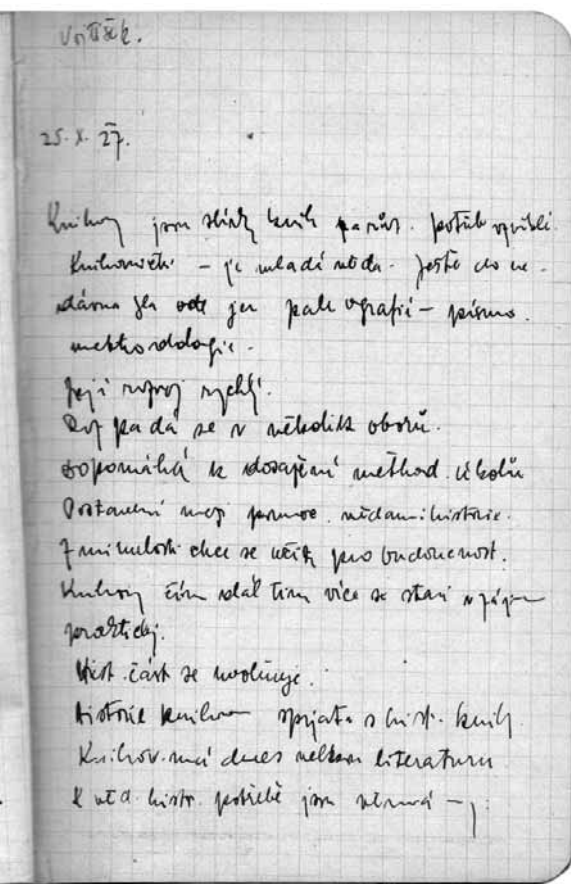 Vojtíšek.
25. X. 27.
Knihovny jsou sbírky knih
Knihovnictví – je mladá věda. Ještě do ne-
dávna šla jen paleografií – písmo.
methodologie.
Její rozvoj rychlý.
Rozpadá se v několik oborů.
Dopomáhá k dosažení method. úkolů
Postavení mezi pomoc. vědami historie.
Z minulosti chce se učiti pro budoucnost.
Knihovny čím dál tím více se staví
praktický.
Hist. část se uvolňuje.
Historie knihoven spjata s hist. knih
Knihov. má dnes velkou literaturu
K věd. histr. potřebě jsou